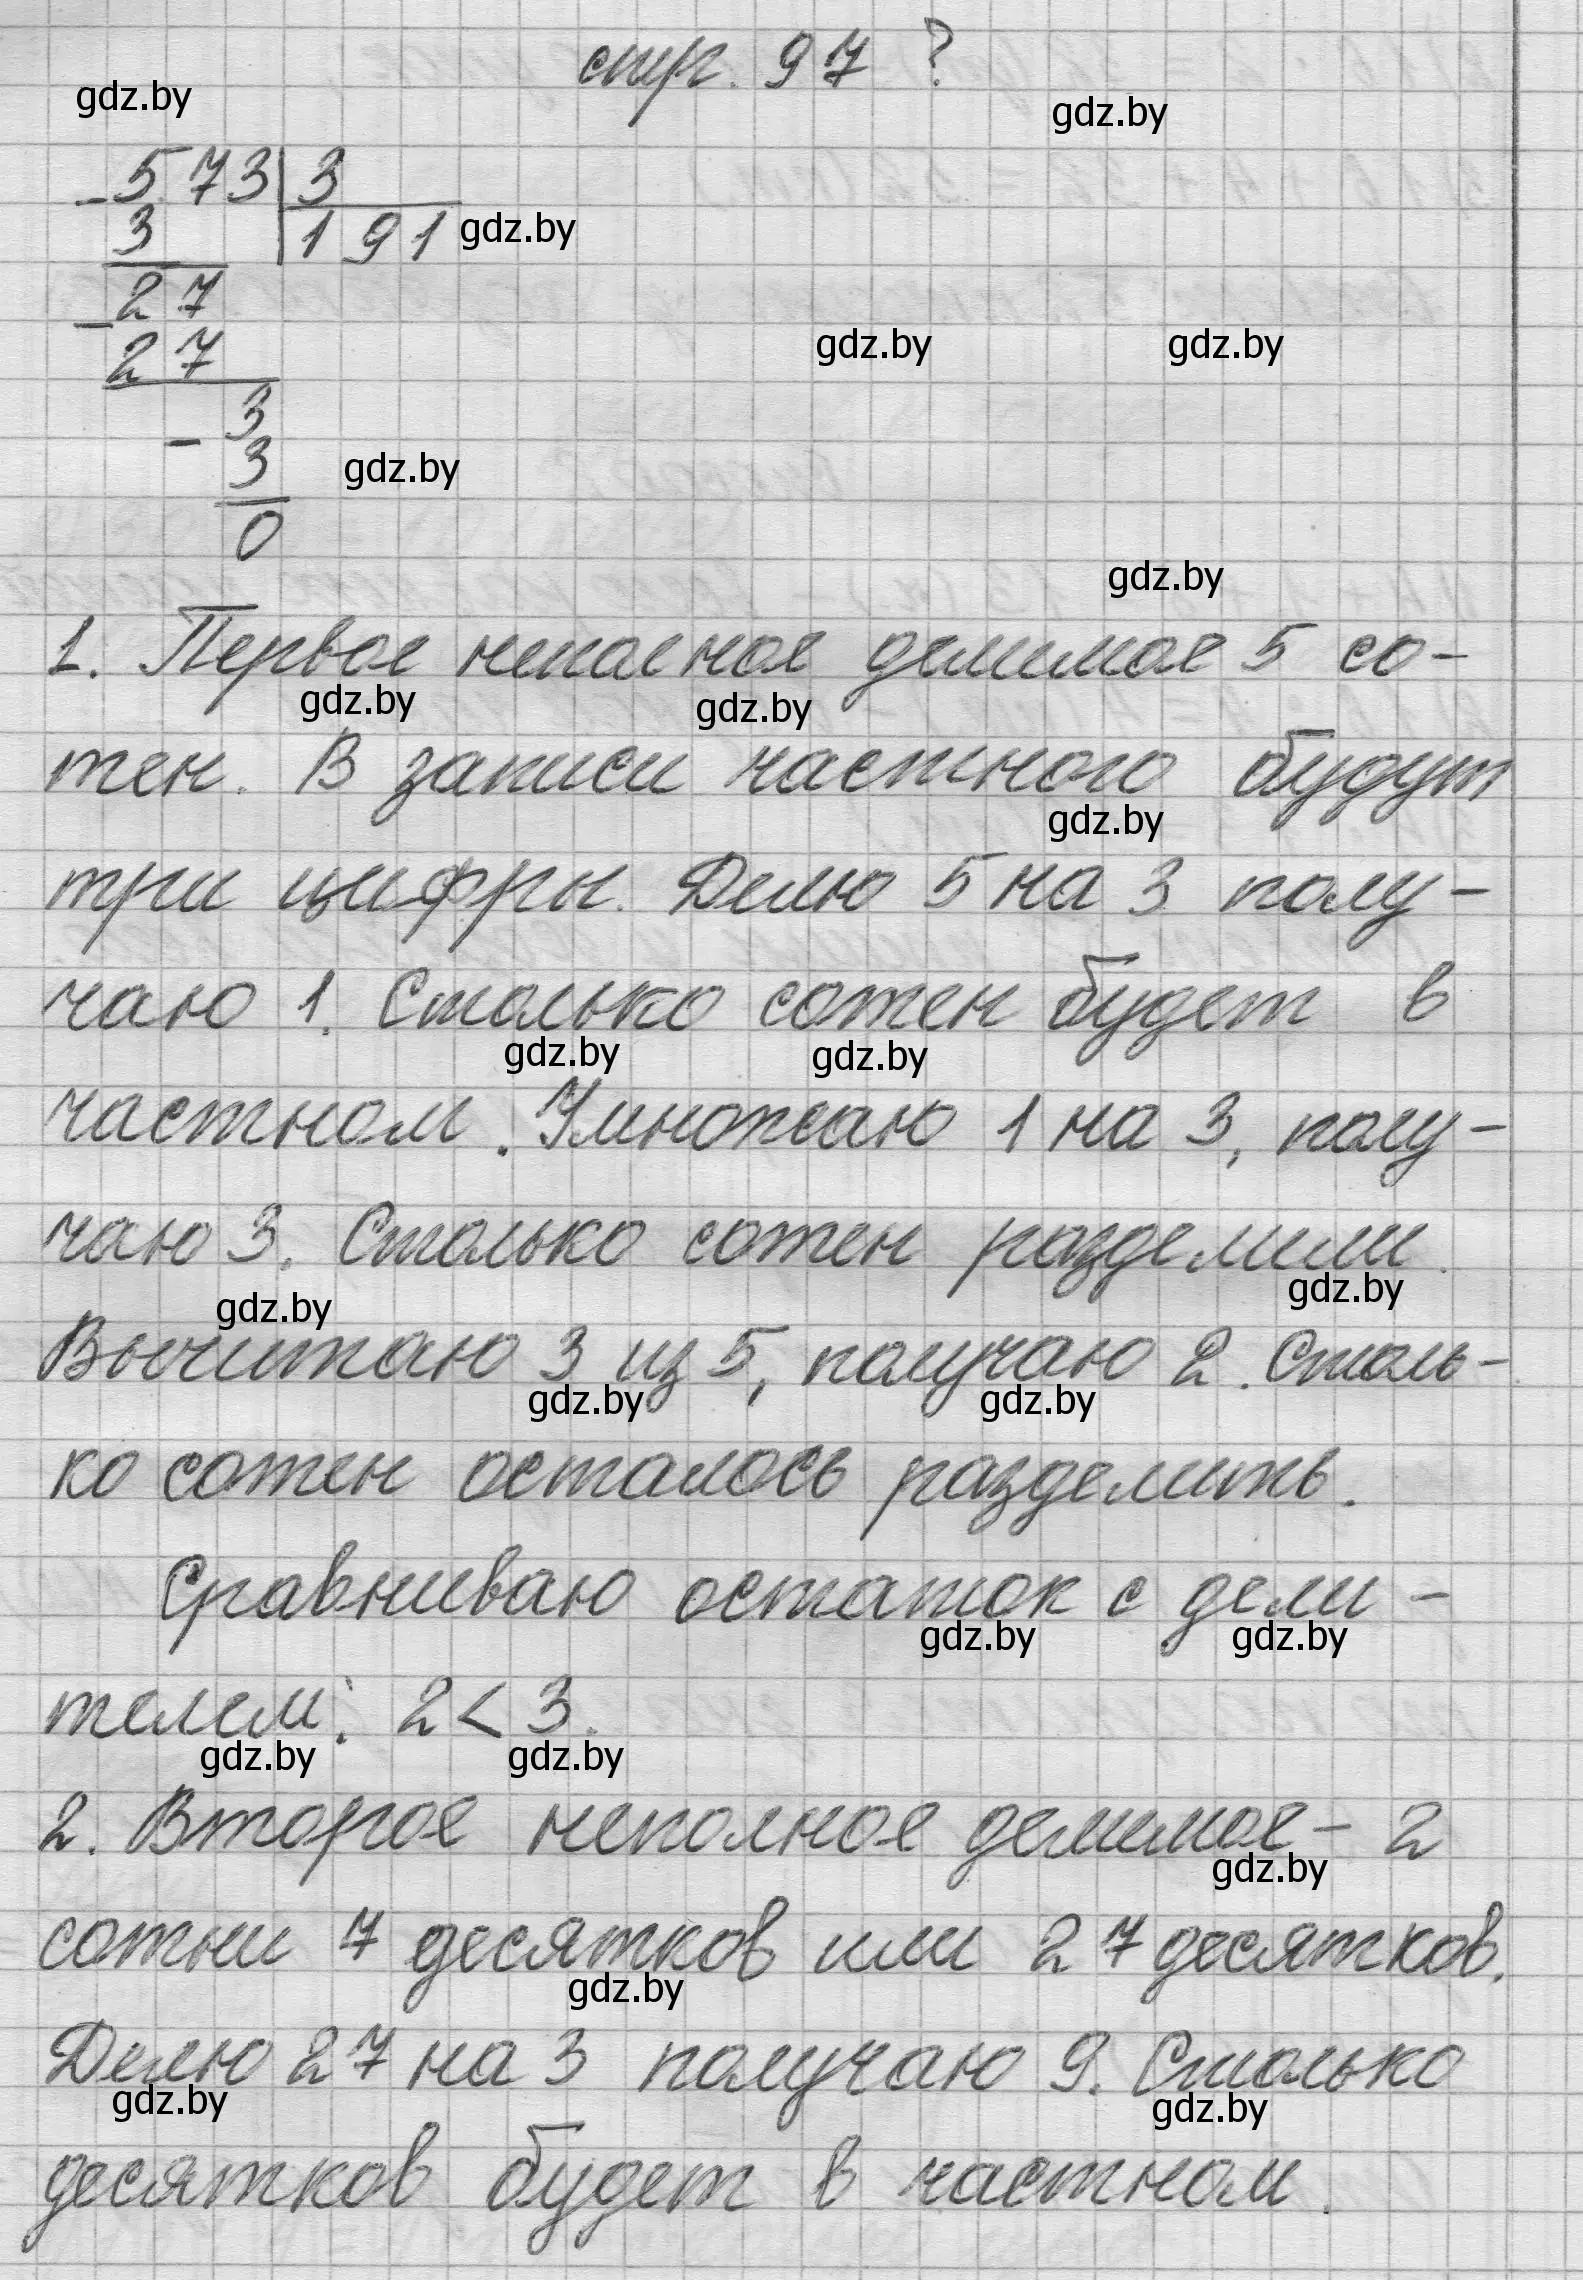 стр. 97 ?
gdz.by
gdz.by
- 573 | 3
3 | 191
gdz.by
27
- 27
gdz.by gdz.by
3
- 3
gdz.by
0
gdz.by
1. Первое неполное делимое 5 со-
gdz.by gdz.by
тен. В записи частного будут
gdz.by
три цифры. Делю 5 на 3 полу-
чаю 1. Столько сотен будет в
gdz.by gdz.by
частном. Умножаю 1 на 3, полу-
чаю 3. Столько сотен разделили.
gdz.by gdz.by
Вычитаю 3 из 5, получаю 2. Столь-
gdz.by gdz.by
ко сотен осталось разделить.
Сравниваю остаток с дели-
gdz.by gdz.by
телем: 2 < 3.
gdz.by gdz.by
2. Второе неполное делимое - 2
gdz.by
сотни 7 десятков или 27 десятков.
gdz.by
Делю 27 на 3 получаю 9. Столько
gdz.by gdz.by
десятков будет в частном.